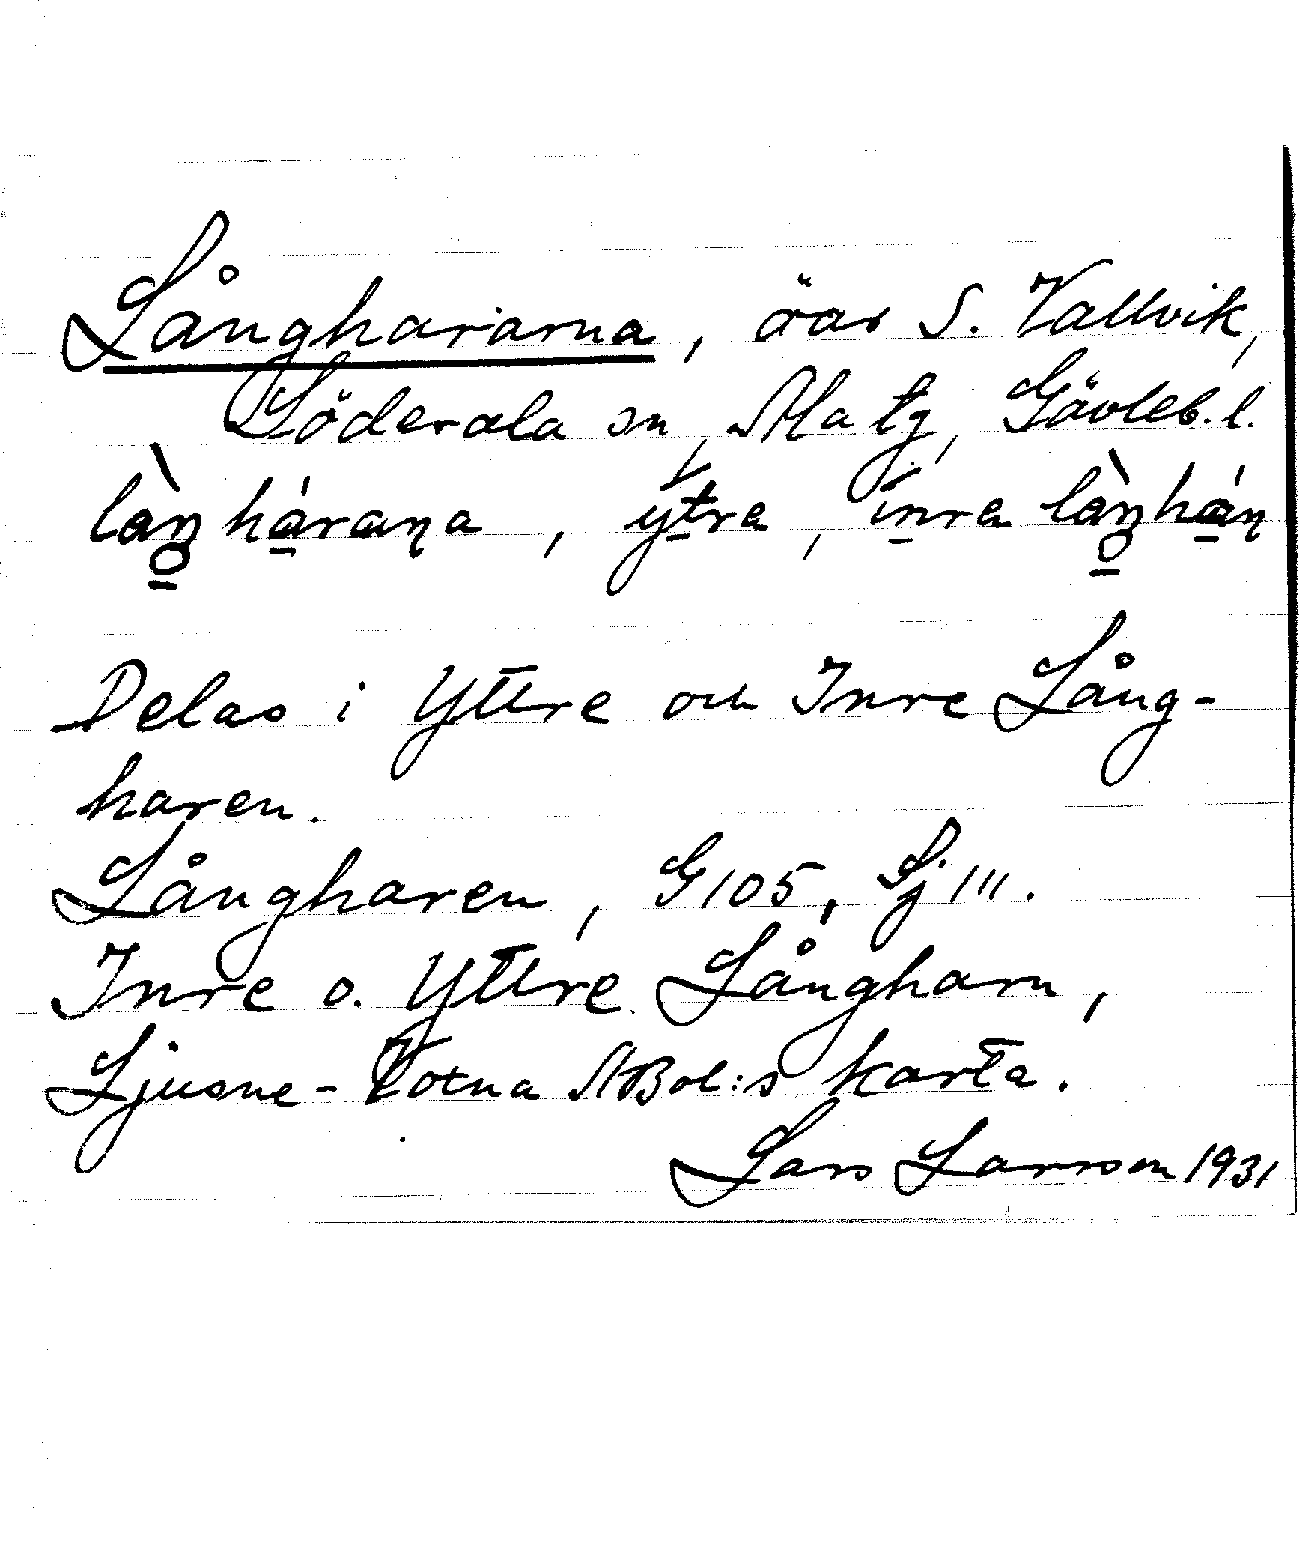 Långhararna, öar S. Vallvik,
Söderala sn, Ala tg, Gävleb. l.
làŋháraṇa, ýtra, ínra làŋháṇ
Delas i Yttre och Inre Lång-
haren.
Långharen, G105, Sj 111.
Inre o. Yttre Långharn,
Ljusne-Voxna ABol:s karta.
Lars Larsson 1931